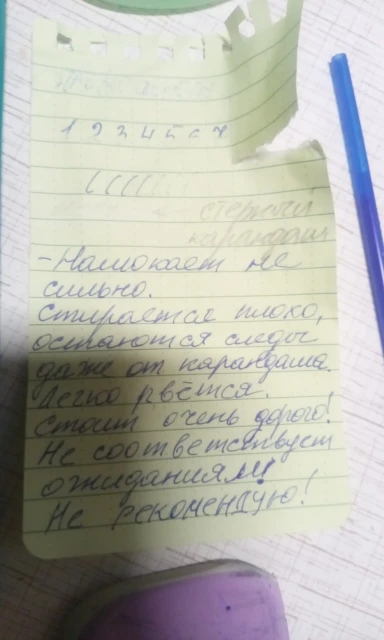 1 2 3 4 5 6 7
стертый
карандаш
- Намокает не
сильно.
Стирается плохо,
остаются следы
даже от карандаша.
Легко рвётся.
Стоит очень дорого!
Не соответствует
ожиданиям!
Не рекомендую!